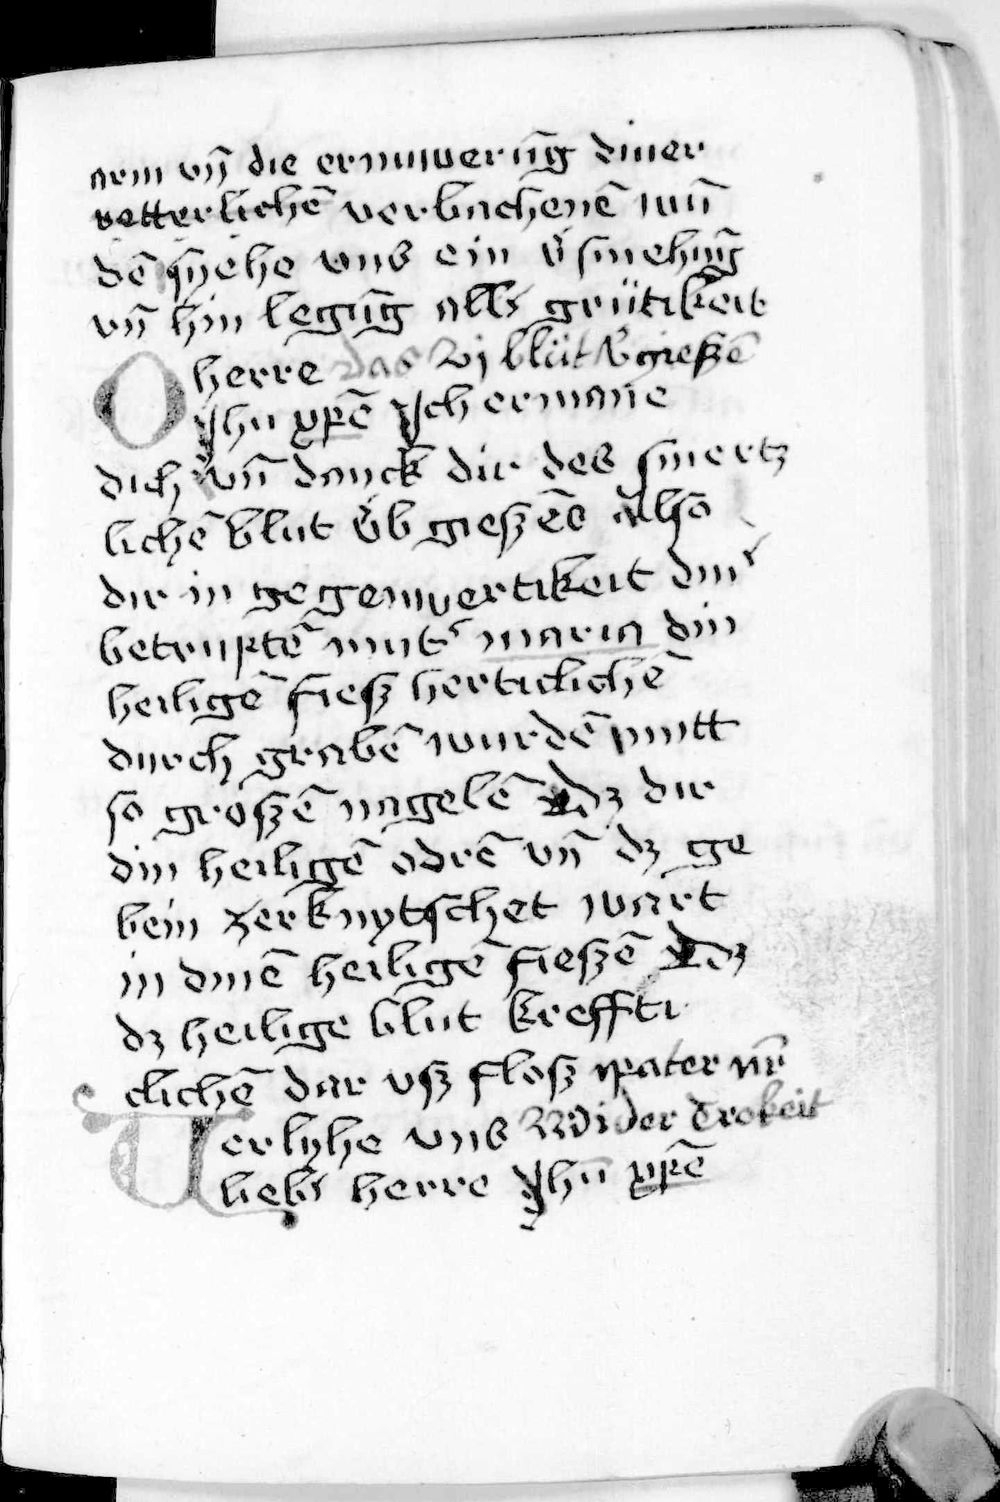 arm vn̄ die ernuwerūg diner
vetterlichē verbachenē wū
dē lyehe vns ein v̉smehūg
vn̄ hin legūg allˢ grütikeit
O herre das vj blüt v̉gieszē
Jhū xp̄ē Jch ermane
dich vn̄ danck dir des smertz
lichē blut v̉b gieszēs also
dir in gegenwertikeit dinˢ
betruptē mutˢ maria din
heiligē fiesz herticlichē
durch grabē wurdē mitt
so groszē nagelē dz dir
din heiligē odrē vn̄ dz ge
bein zerknytschet wart
in dinē heiligē fieszē dz
dz heilige blut kreffti
clichē dar vsz flosz pater nr̄
Uerlyhe vns Wider Trokeit
liebˢ herre Jhū xp̄ē